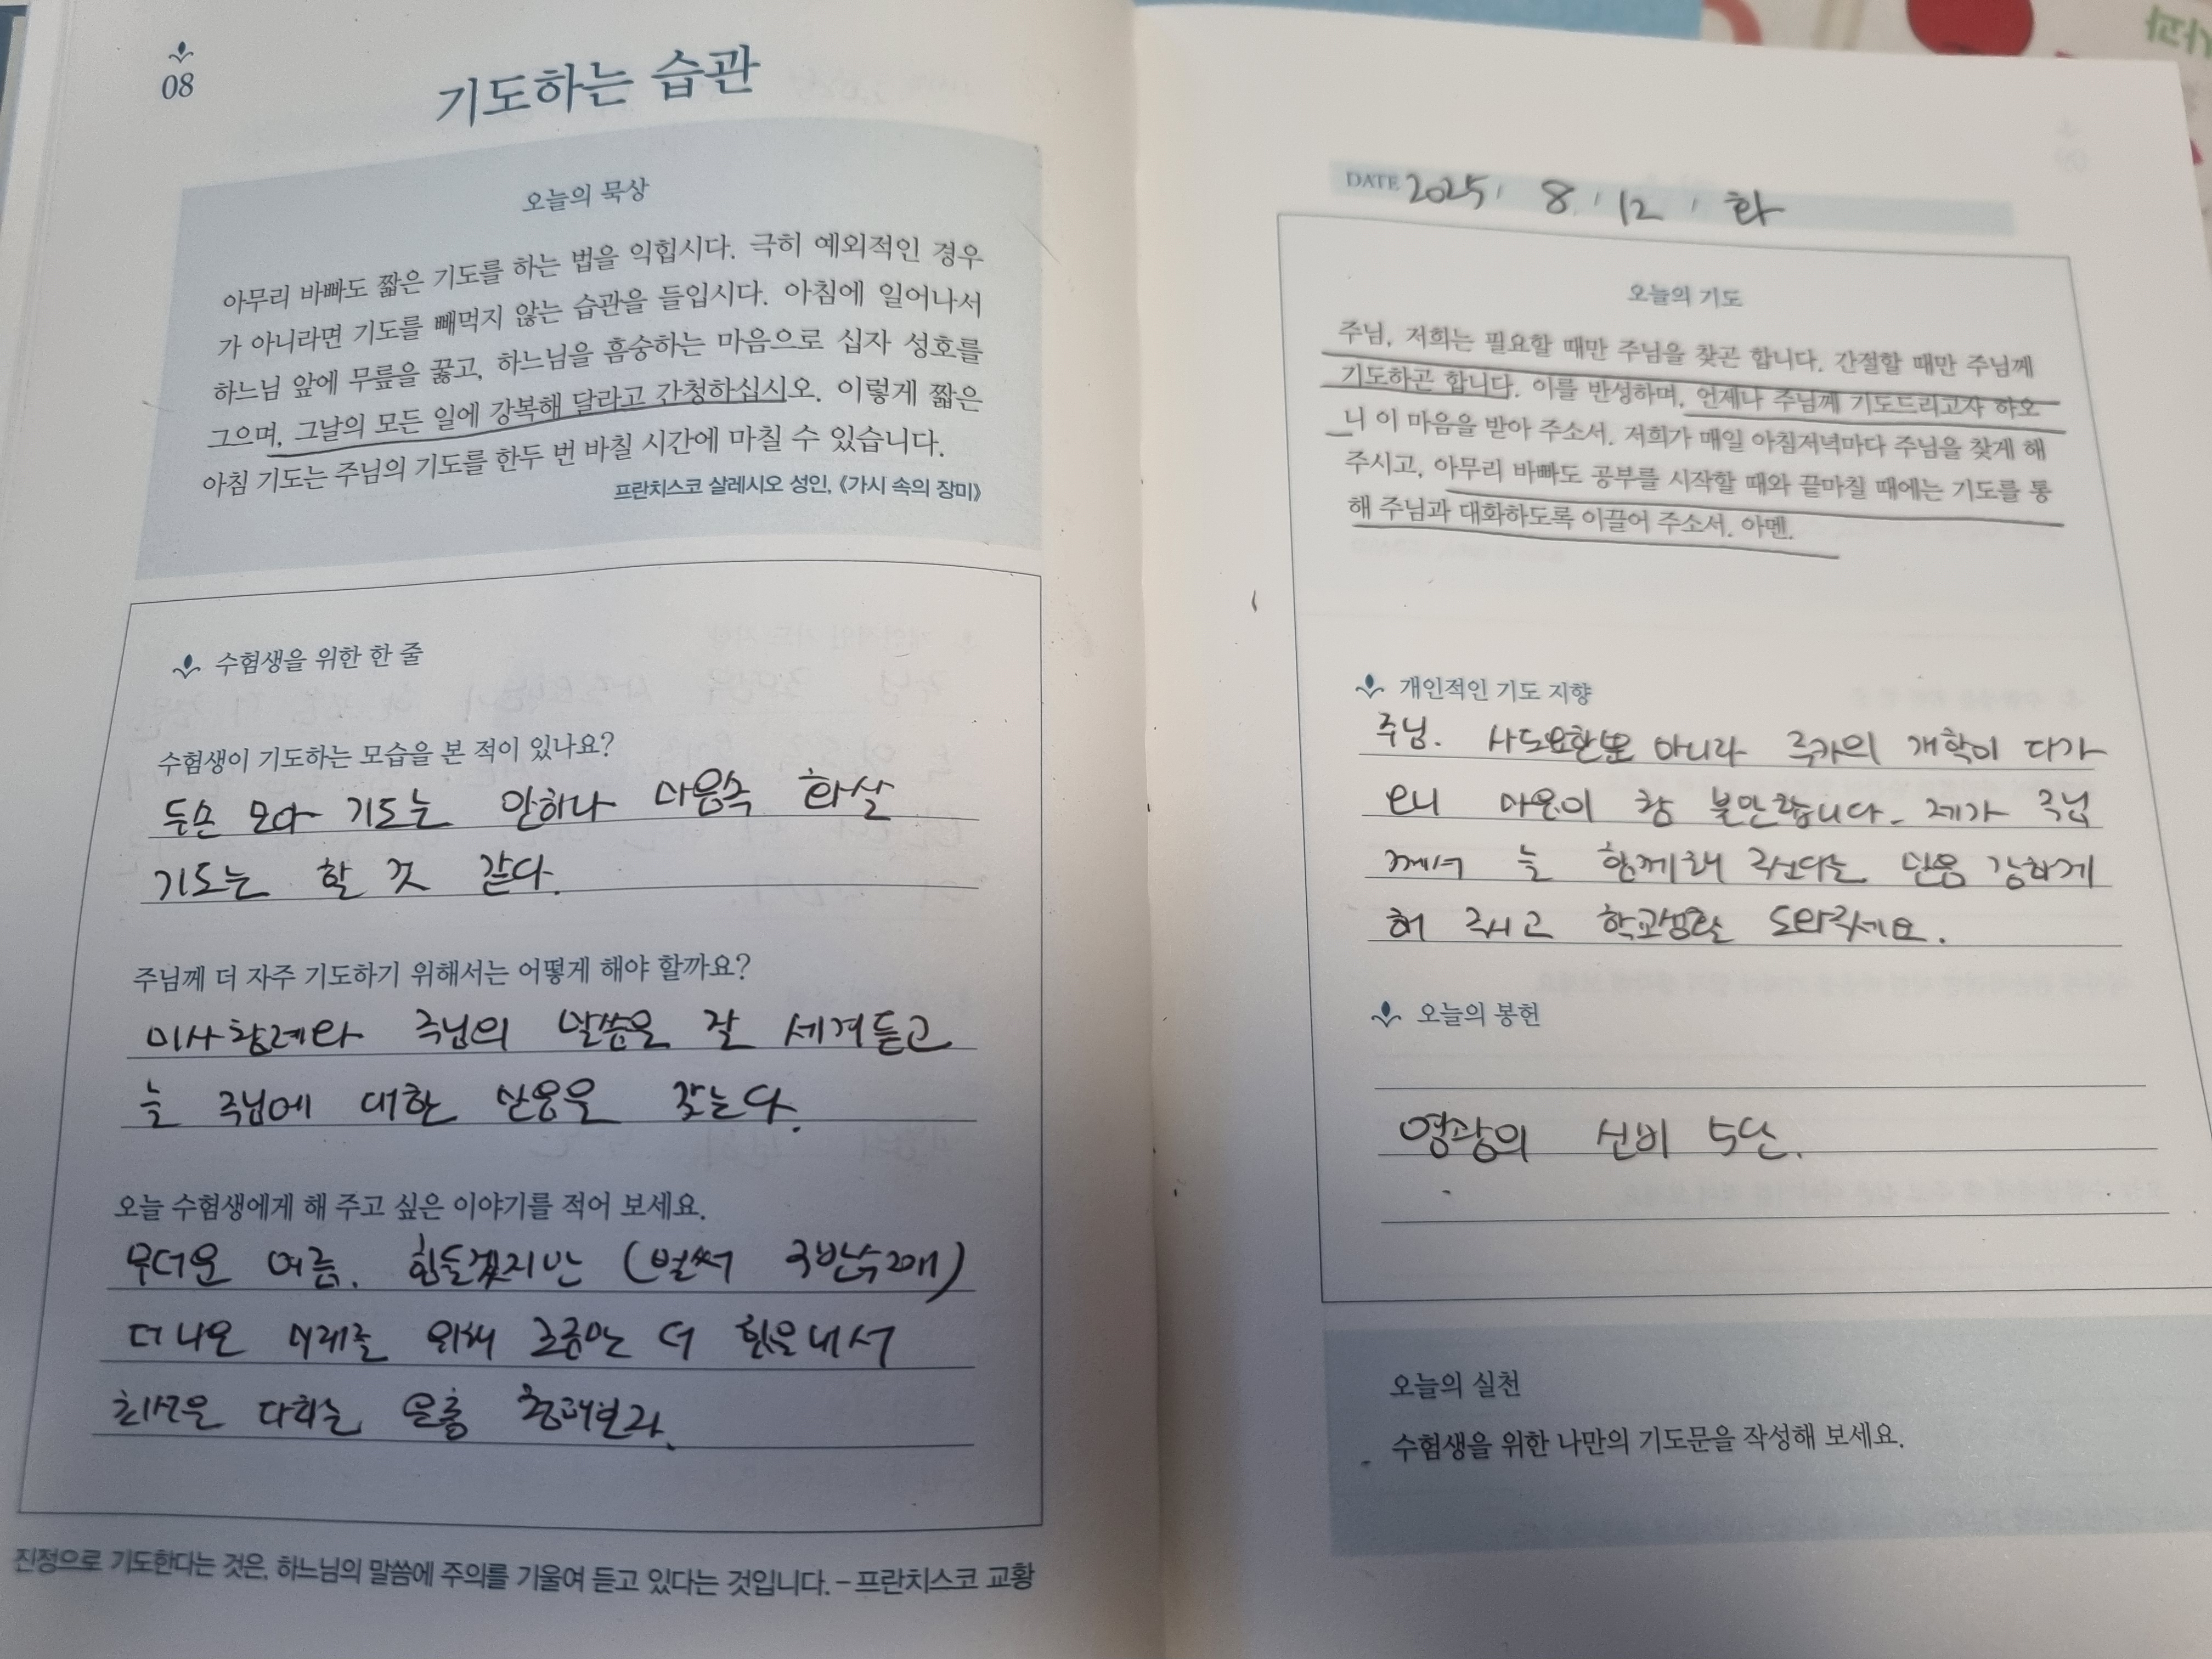 08
기도하는 습관
오늘의 묵상
아무리 바빠도 짧은 기도를 하는 법을 익힙시다. 극히 예외적인 경우
가 아니라면 기도를 빼먹지 않는 습관을 들입시다. 아침에 일어나서
하느님 앞에 무릎을 꿇고, 하느님을 흠숭하는 마음으로 십자 성호를
그으며, 그날의 모든 일에 강복해 달라고 간청하십시오. 이렇게 짧은
아침 기도는 주님의 기도를 한두 번 바칠 시간에 마칠 수 있습니다.
프란치스코 살레시오 성인, 《가시 속의 장미》
수험생을 위한 한 줄
수험생이 기도하는 모습을 본 적이 있나요?
두손 모아 기도는 안하나 마음속 화살
기도는 할 것 같다.
주님께 더 자주 기도하기 위해서는 어떻게 해야 할까요?
미사참례와 주님의 말씀을 잘 세겨듣고
늘 주님에 대한 믿음을 갖는다.
오늘 수험생에게 해 주고 싶은 이야기를 적어 보세요.
무더운 여름. 힘들겠지만 (벌써
더 나은 미래를 위해 조금만 더 힘을 내서
최선을 다하는
진정으로 기도한다는 것은, 하느님의 말씀에 주의를 기울여 듣고 있다는 것입니다. – 프란치스코 교황
DATE 2025. 8. 12. 화
오늘의 기도
주님, 저희는 필요할 때만 주님을 찾곤 합니다. 간절할 때만 주님께
기도하곤 합니다. 이를 반성하며, 언제나 주님께 기도드리고자 하오
니 이 마음을 받아 주소서. 저희가 매일 아침저녁마다 주님을 찾게 해
주시고, 아무리 바빠도 공부를 시작할 때와 끝마칠 때에는 기도를 통
해 주님과 대화하도록 이끌어 주소서. 아멘.
개인적인 기도 지향
주님. 사도요한뿐 아니라 루카의 개학이 다가
오니 마음이 참 불안합니다. 제가 주님
께서 늘 함께해 주신다는 믿음 강하게
해 주시고 학교생활 도와주세요.
오늘의 봉헌
영광의 신비 5단.
오늘의 실천
수험생을 위한 나만의 기도문을 작성해 보세요.